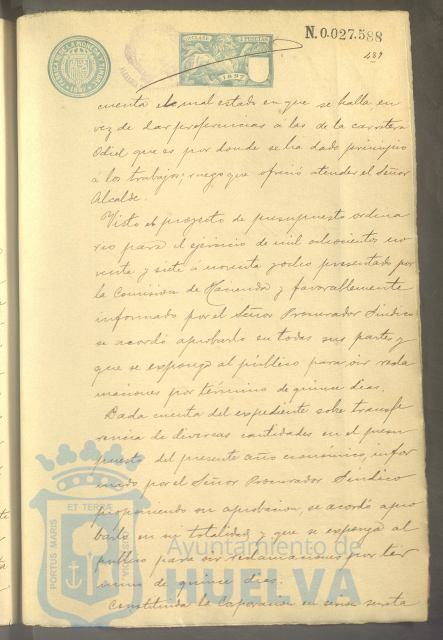 N.0.027.588
489
1897
cuenta el mal estado en que se halla en
vez de dar preferencias á las de la carretera
Odiel que es por donde se ha dado principio
á los trabajos; ruego que ofreció atender el Señor
Alcalde.
Visto el proyecto de presupuesto ordina
rio para el ejercicio de mil ochocientos no
venta y siete á noventa y ocho presentado por
la Comision de Hacienda y favorablemente
informado por el Señor Procurador Sindico
se acordó aprobarlo en todas sus partes y
que se exponga al público para oir recla
maciones por término de quince dias.
Dada cuenta del expediente sobre transfe
rencia de diversas cantidades en el presu
puesto del presente año económico, infor
mado por el Señor Procurador Sindico
proponiendo su aprobacion, se acordó apro
barlo en su totalidad y que se exponga al
público para oir reclamaciones por tér
mino de quince dias.
Constituida la Corporacion en sesion secreta
PORTUS MARIS
ET TERRÆ
Ayuntamiento de
HUELVA